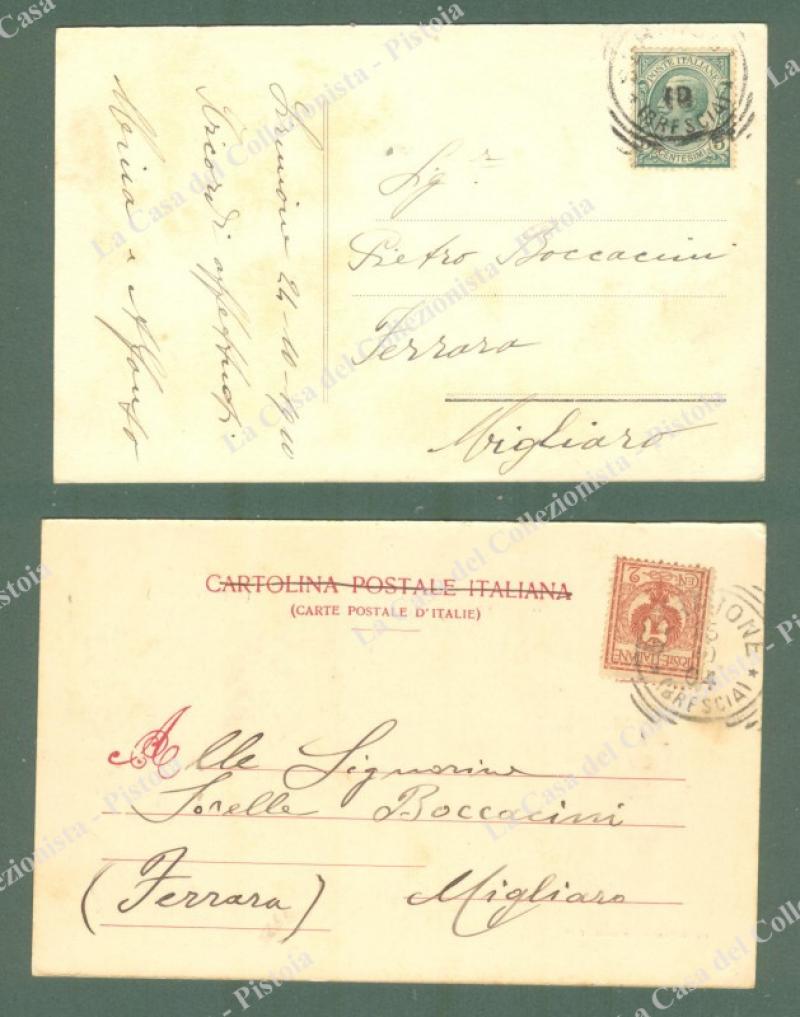 Sirmione 24-10-1910
Ricordi affettuosi
POSTE ITALIANE
10
(BRESCIA)
CENTESIMI 5
Sig.r
Pietro Boccacini
Ferrara
Migliaro
CARTOLINA POSTALE ITALIANA
(CARTE POSTALE D'ITALIE)
2
POSTE ITALIANE
SIRMIONE
04
(BRESCIA)
Alle Signorine
Sorelle Boccacini
(Ferrara) Migliaro
La Casa del Collezionista - Pistoia